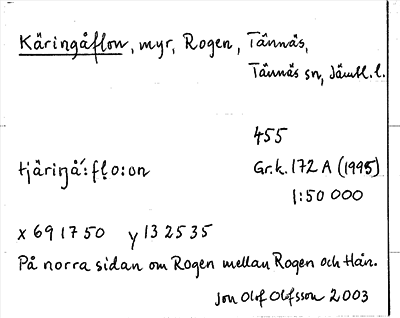 Käringåflon, myr, Rogen, Tännäs,
Tännäs sn, Jämtl. l.
455
tjäriŋå´:fḷo:on
Gr.k. 172 A (1995)
1:50 000
x 691750 y 132535
På norra sidan om Rogen mellan Rogen och Hån.
Jon Olof Olofsson 2003